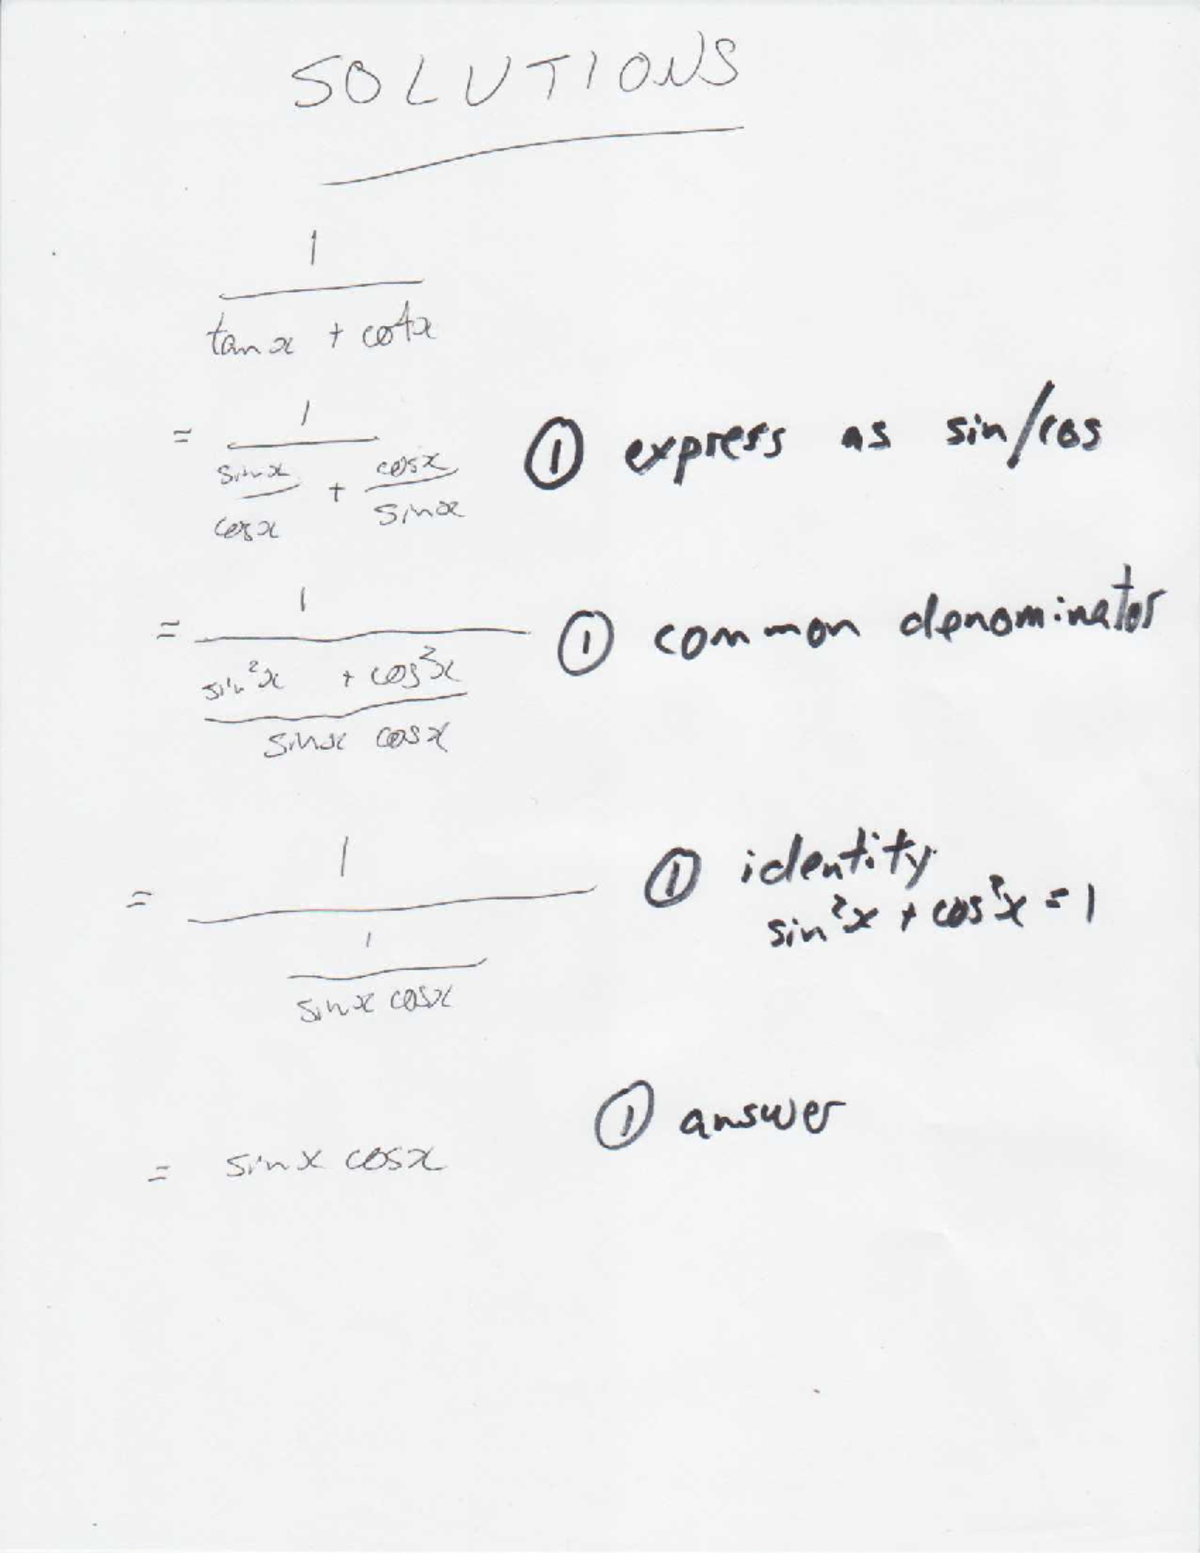 SOLUTIONS
1
tanx + cotx
= 1
sinx/cosx + cosx/sinx ① express as sin/cos
= 1
sin²x + cos²x
sinx cosx ① common denominator
= 1
1
sinx cosx ① identity
sin²x + cos²x = 1
① answer
= sinx cosx